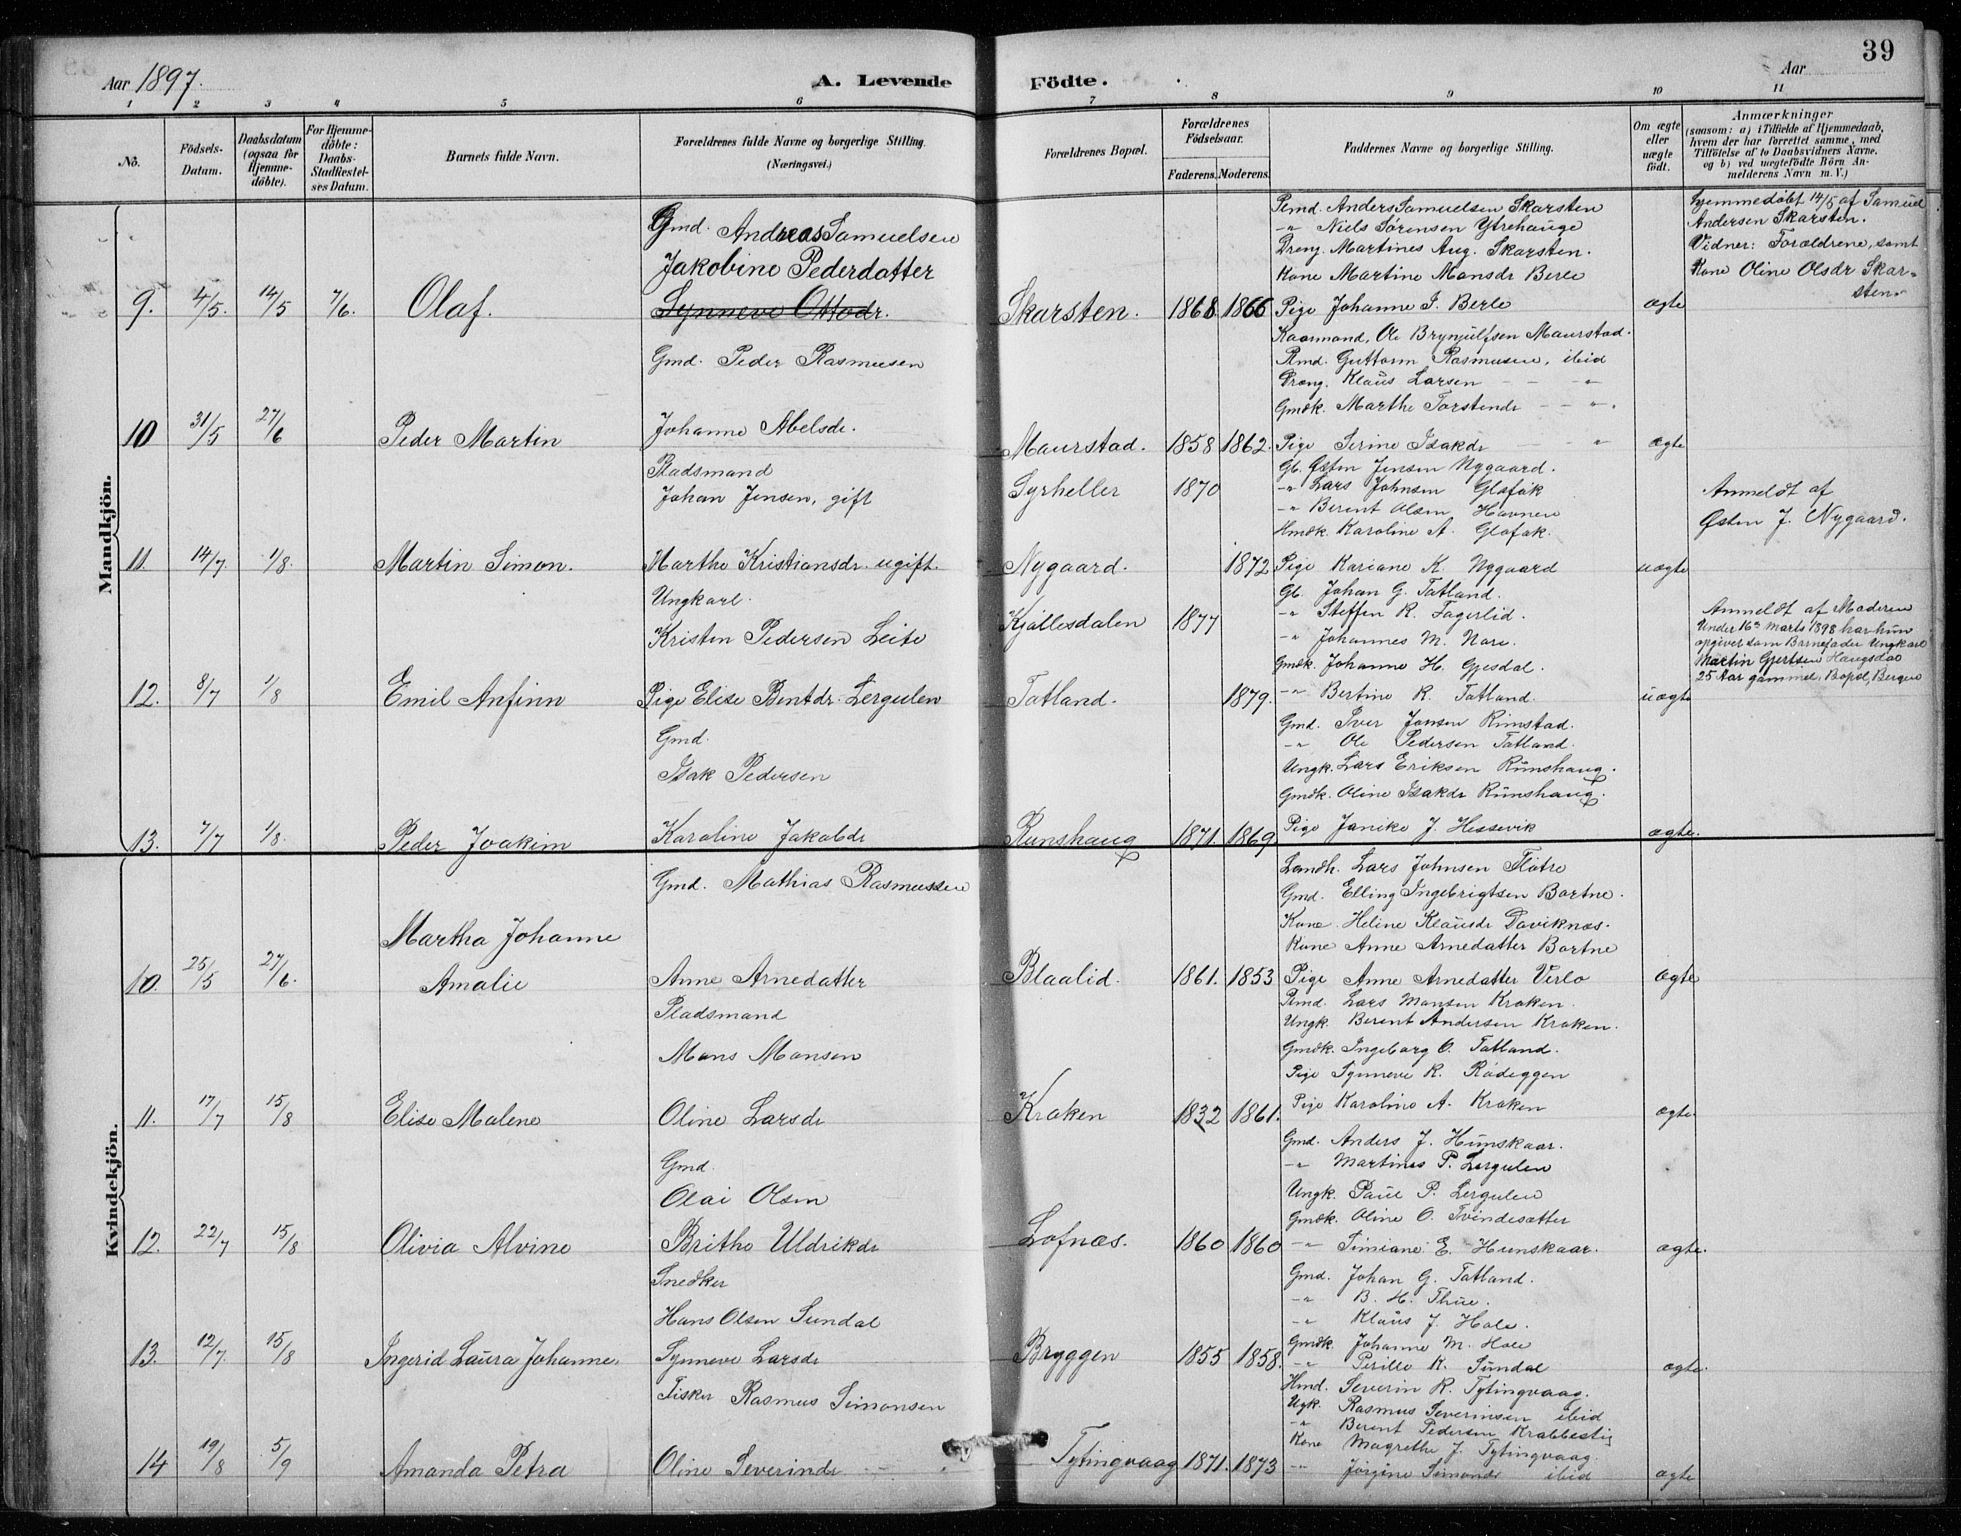 39
Aar 1897.
A. Levende Födte.
Aar
1 2 3 4 5 6 7 8 9 10 11
No.
Födsels-Datum.
Daabsdatum (ogsaa for Hjemme-döbte).
For Hjemme-döbte: Daabs-Stadfæstel-ses Datum.
Barnets fulde Navn.
Forældrenes fulde Navne og borgerlige Stilling. (Næringsvei.)
Forældrenes Bopæl.
Forældrenes Födselsaar.
Faderens. Moderens.
Faddernes Navne og borgerlige Stilling.
Om ægte eller uægte födt.
Anmærkninger
(saasom: a) i Tilfælde af Hjemmedaab,
hvem der har forrettet samme, med
Tilföielse af to Daabsvidners Navne.
og b) ved uægtefödte Börn An-
melderens Navn m. V.)
Mandkjön.
Gmd. Andreas Samuelsen
Jakobine Pederdatter
9. 4/5. 14/5 7/6. Olaf. Synneve Ottodr. Skarsten. 1868 1866 ægte
Pmd. Anders Samuelsen Skarsten
-"- Niels Sørensen Ytrehauge
Dreng. Martines Aug. Skarsten.
Kone Martine Monsdr Berle
Pige Johanne S. Berle
Hjemmedøbt 14/5 af Samuel
Andersen Skarsten.
Vidner: Forældrene, samt
Kone Oline Olsdr Skar-
sten.
Gmd. Peder Rasmusen
10 31/5 27/6 Peder Martin Johanne Abelsdr. Maurstad. 1858 1862. ægte
Kaarmand. Ole Brynjulfsen Maurstad.
Pmd. Guttorm Rasmusen, ibid
Dreng. Klaus Larsen - - "
Gmdk. Marthe Torstendr - - "
Pige Serine Isakdr - "
Pladsmand
Johan Jensen, gift Syrheller 1870
11. 14/7 1/8. Martin Simon. Marthe Kristiansdr. ugift. Nygaard. 1872 uægte
Gb. Østen Jensen Nygaard.
-"- Lars Johnsen Glofak
-"- Berent Olsen Havnen
Hmdk. Karoline A. Glofak.
Pige Kariane K. Nygaard
Anmeldt af
Østen J. Nygaard.
Ungkarl.
Kristen Pedersen Leite Kjøllesdalen 1877
12. 8/7 1/8 Emil Anfinn Pige Elise Bentdr. Lergulen Totland. 1879. uægte
Gb. Johan G. Totland.
-"- Steffen R. Fagerlid.
-"- Johannes M. Nore.
Gmdk. Johanne H. Gjesdal.
-"- Bertine R. Totland.
Anmeldt af Moderen
Under 16de Marts 1898 har hun
opgivet som Barnefader Ungkarl
Martin Gjertsen Haugsdal
25 Aar gammel, Bopæl, Bergen
Gmd.
Isak Pedersen
13. 7/7 1/8. Peder Joakim Karoline Jakobdr Runshaug 1871. 1869. ægte.
Gmd. Iver Jonsen Rimstad.
-"- Ole Pedersen Totland.
Ungk. Lars Eriksen Runshaug.
Gmdk. Oline Isakdr Runshaug.
Pige Janike J. Hessevik
Kvindekjön.
Gmd. Mathias Rasmussen
Martha Johanne
10. 25/5 27/6. Amalie Anne Arnedatter Blaalid. 1861. 1853 ægte
Landh. Lars Johnsen Flotre
Gmd. Elling Ingebrigtsen Bortne.
Kone. Heline Klausdr Daviknæs.
Kone Anne Arnedatter Bortne
Pige Anne Arnedatter Verlo
Pladsmand
Mons Monsen
11. 17/7 15/8 Elise Malene Oline Larsdr Kroken 1832 1861. ægte
Pmd. Lars Monsen Kroken.
Ungk. Berent Andersen Kroken.
Gmdk. Ingeborg O. Totland.
Pige Synneve R. Rødeggen
Pige Karoline A. Kroken
Gmd.
Olai Olsen
12. 22/7 15/8 Olivia Alvine Brithe Uldrikdr Lofnæs. 1860 1860 ægte.
Gmd. Anders J. Hunskaar.
-"- Martines P. Lergulen
Ungk. Paul P. Lergulen
Gmdk. Oline O. Tvindesætter
-"- Simiane E. Hunskaar.
Snedker
Hans Olsen Sundal
13. 12/7. 15/8 Ingerid Laura Johanne. Synneve Larsdr Bryggen 1855 1858. ægte.
Gmd. Johan G. Totland.
-"- B. H. Thue.
-"- Klaus J. Hole.
Gmdk. Johanne M. Hole
-"- Perille K. Sundal
Fisker Rasmus Simonsen
14 19/8 5/9 Amanda Petra Oline Severindr Tytingvaag 1871. 1873 ægte
Hmd. Severin R. Tytingvaag.
Ugk. Rasmus Severinsen ibid
-"- Berent Pedersen Krabbestig
Kone Magrethe J. Tytingvaag
-"- Jørgine Simondr ibid